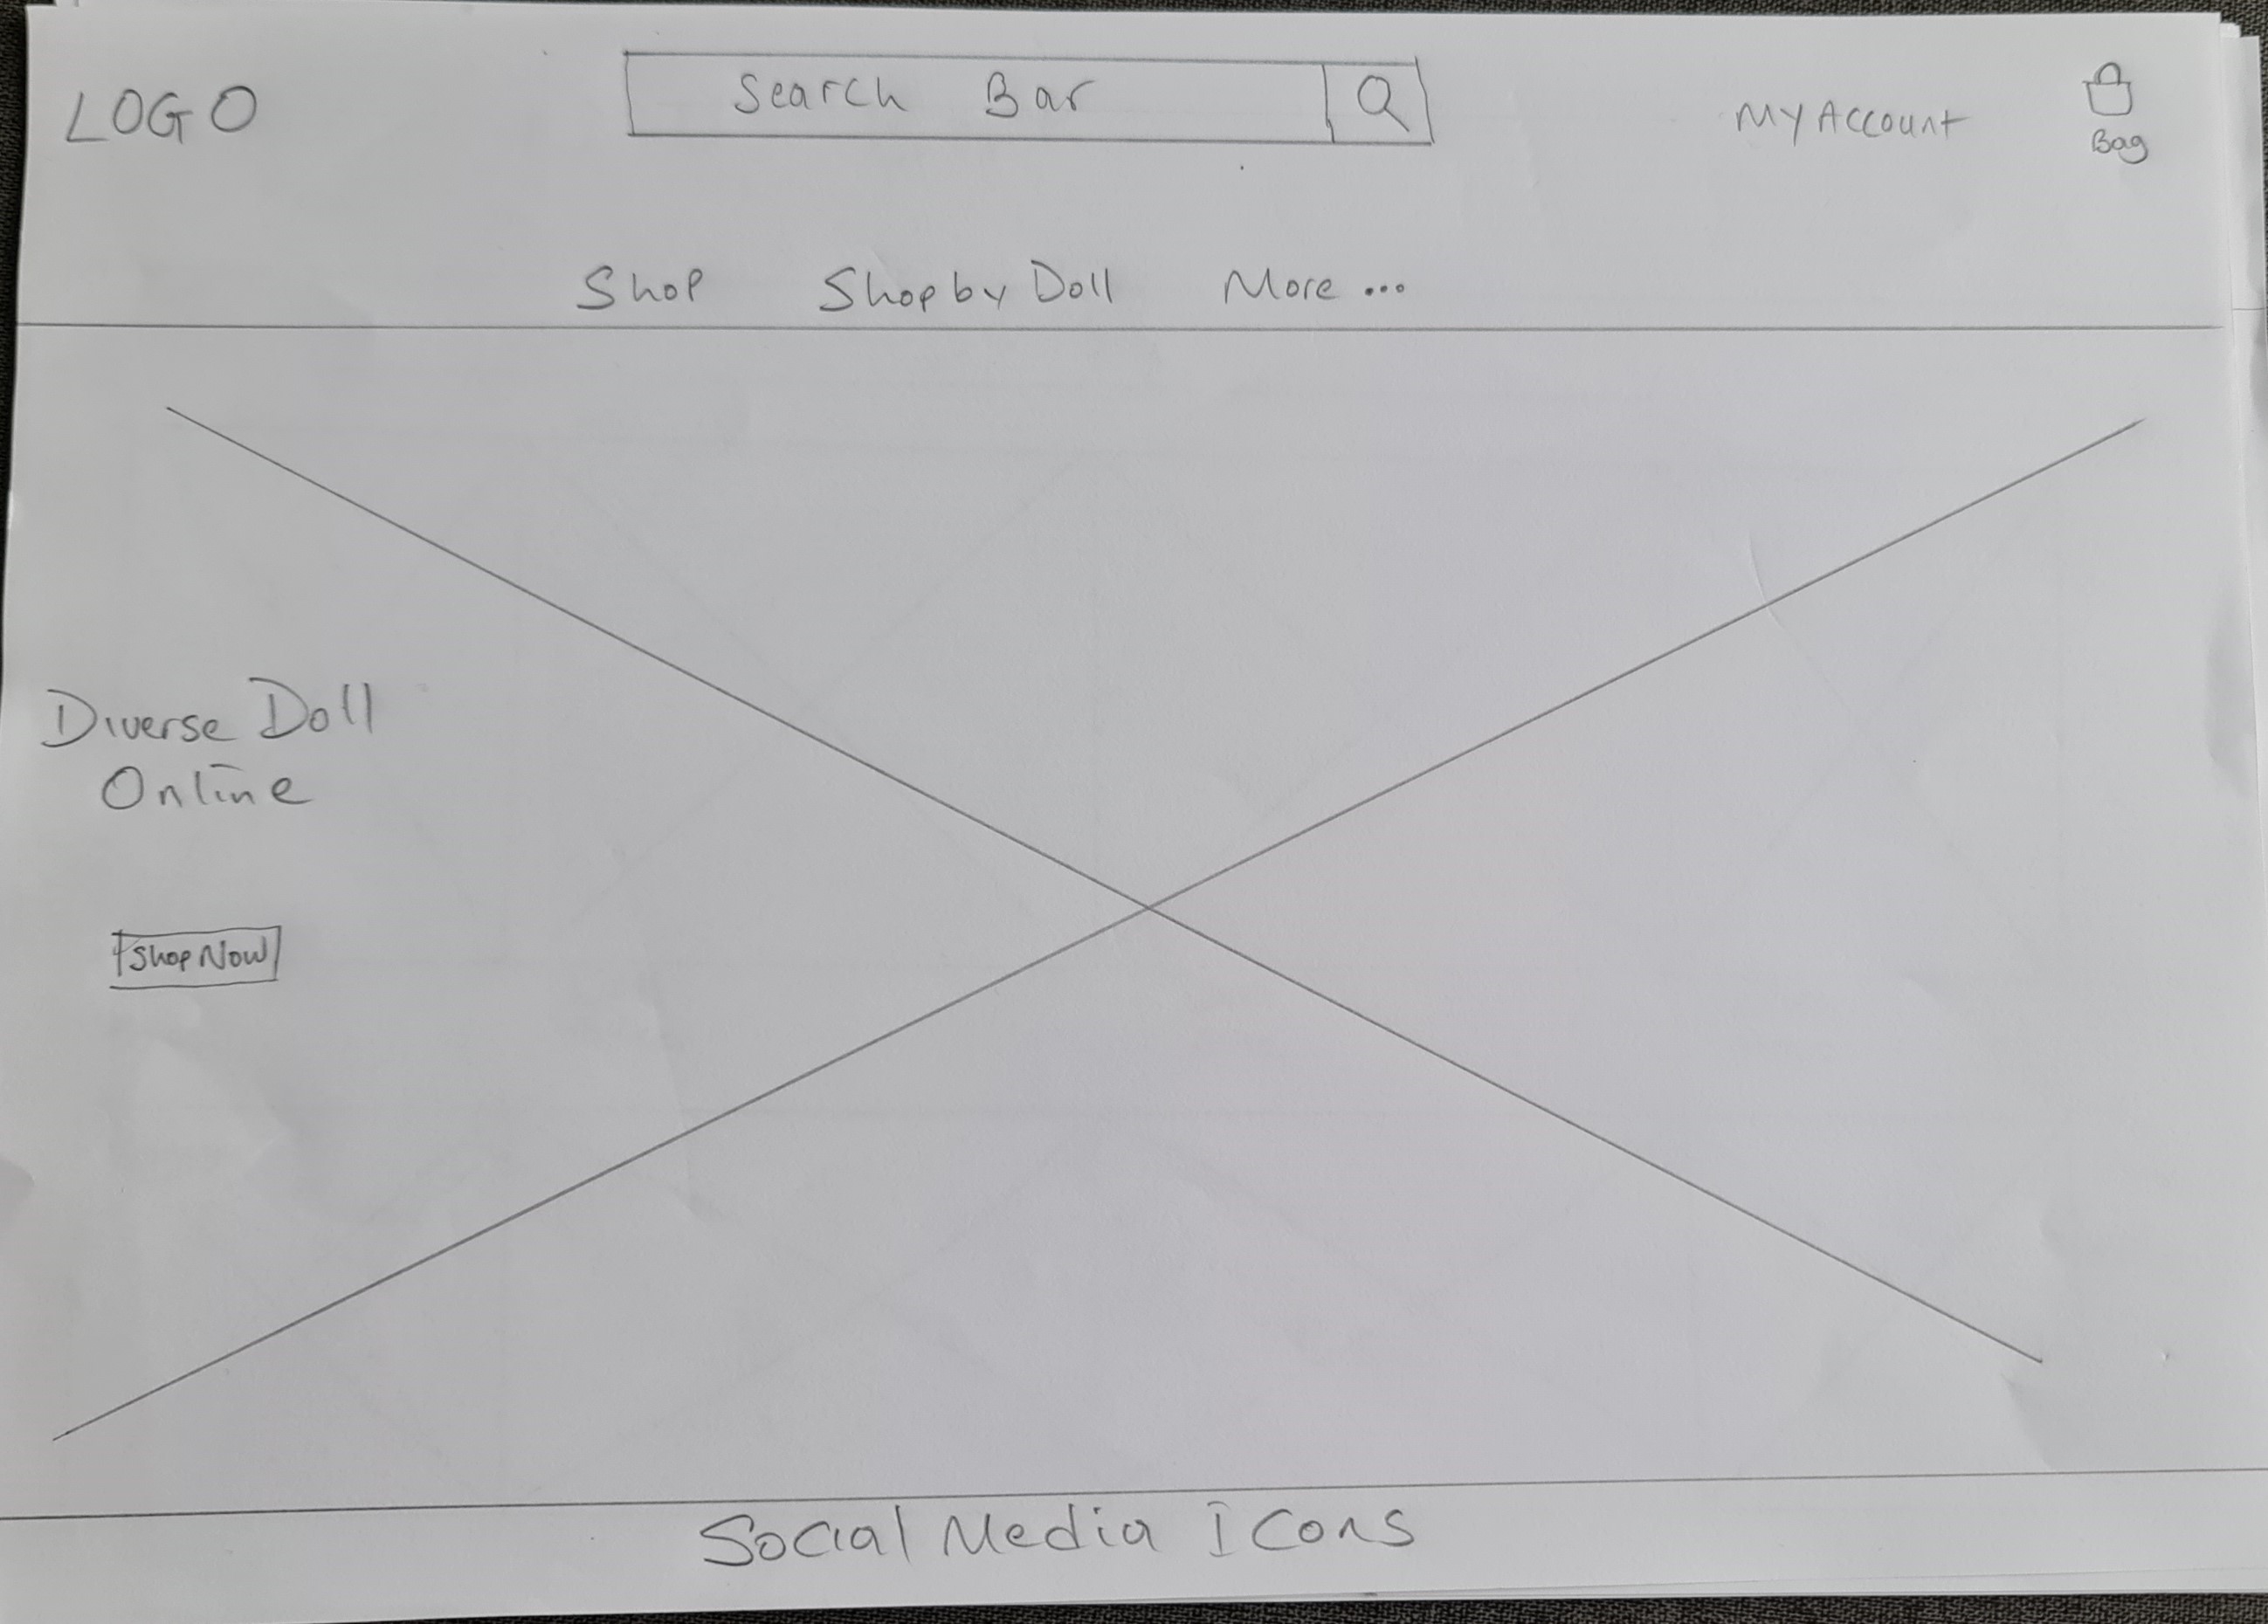 LOGO
Search Bar
My Account
Bag
Shop Shop by Doll More ...
Diverse Doll
Online
Shop Now
Social Media Icons